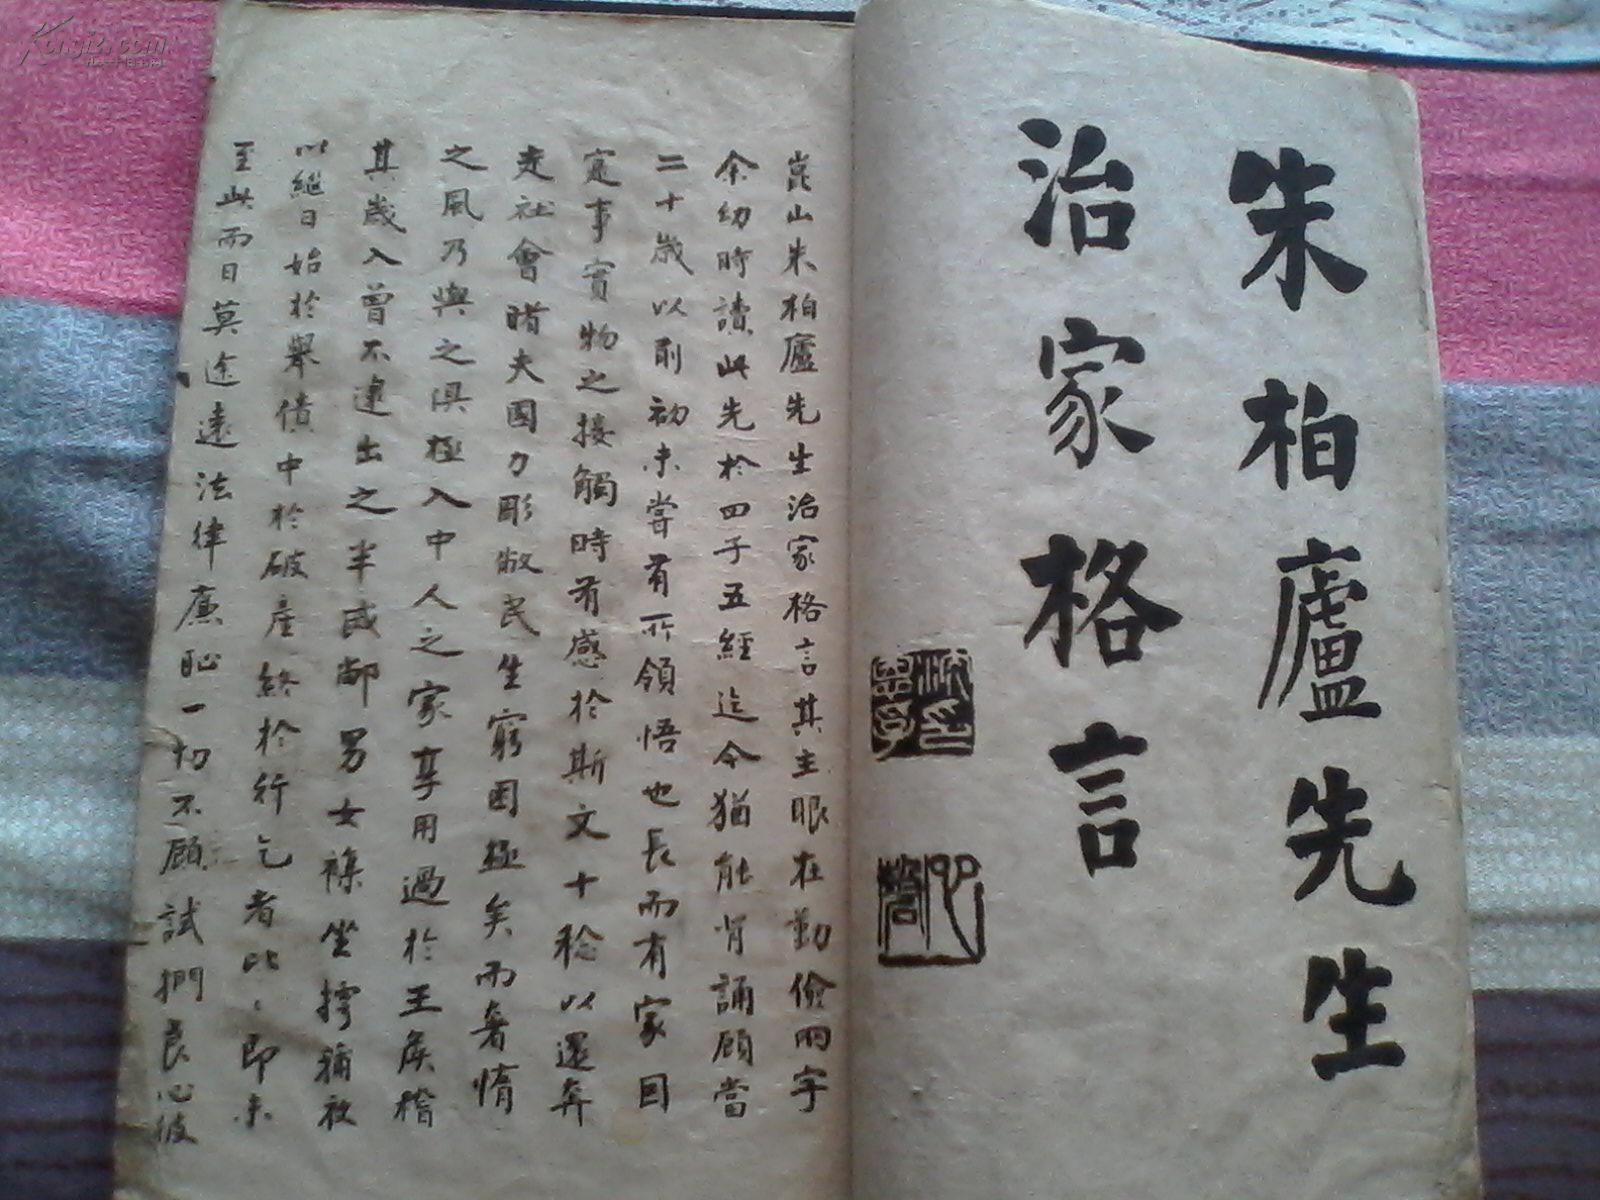 朱柏廬先生
治家格言
崑山朱柏廬先生治家格言其主眼在勤儉兩字
余幼時讀此先於四子五經迄今猶能背誦顧當
二十歲以前初未嘗有所領悟也長而有家因
寔事實物之接觸時有感於斯文十稔以還奔
走社會睹夫國力彫敝民生窮困極矣而奢惰
之風乃與之俱極入中人之家享用過於王侯稽
其歲入曾不逮出之半或鄰男女褋坐摴蒱夜
以繼日始於舉債中於破產終於行乞者比比即未
至此而日莫途遠法律廉恥一切不顧試捫良心彼
Kongfz.com